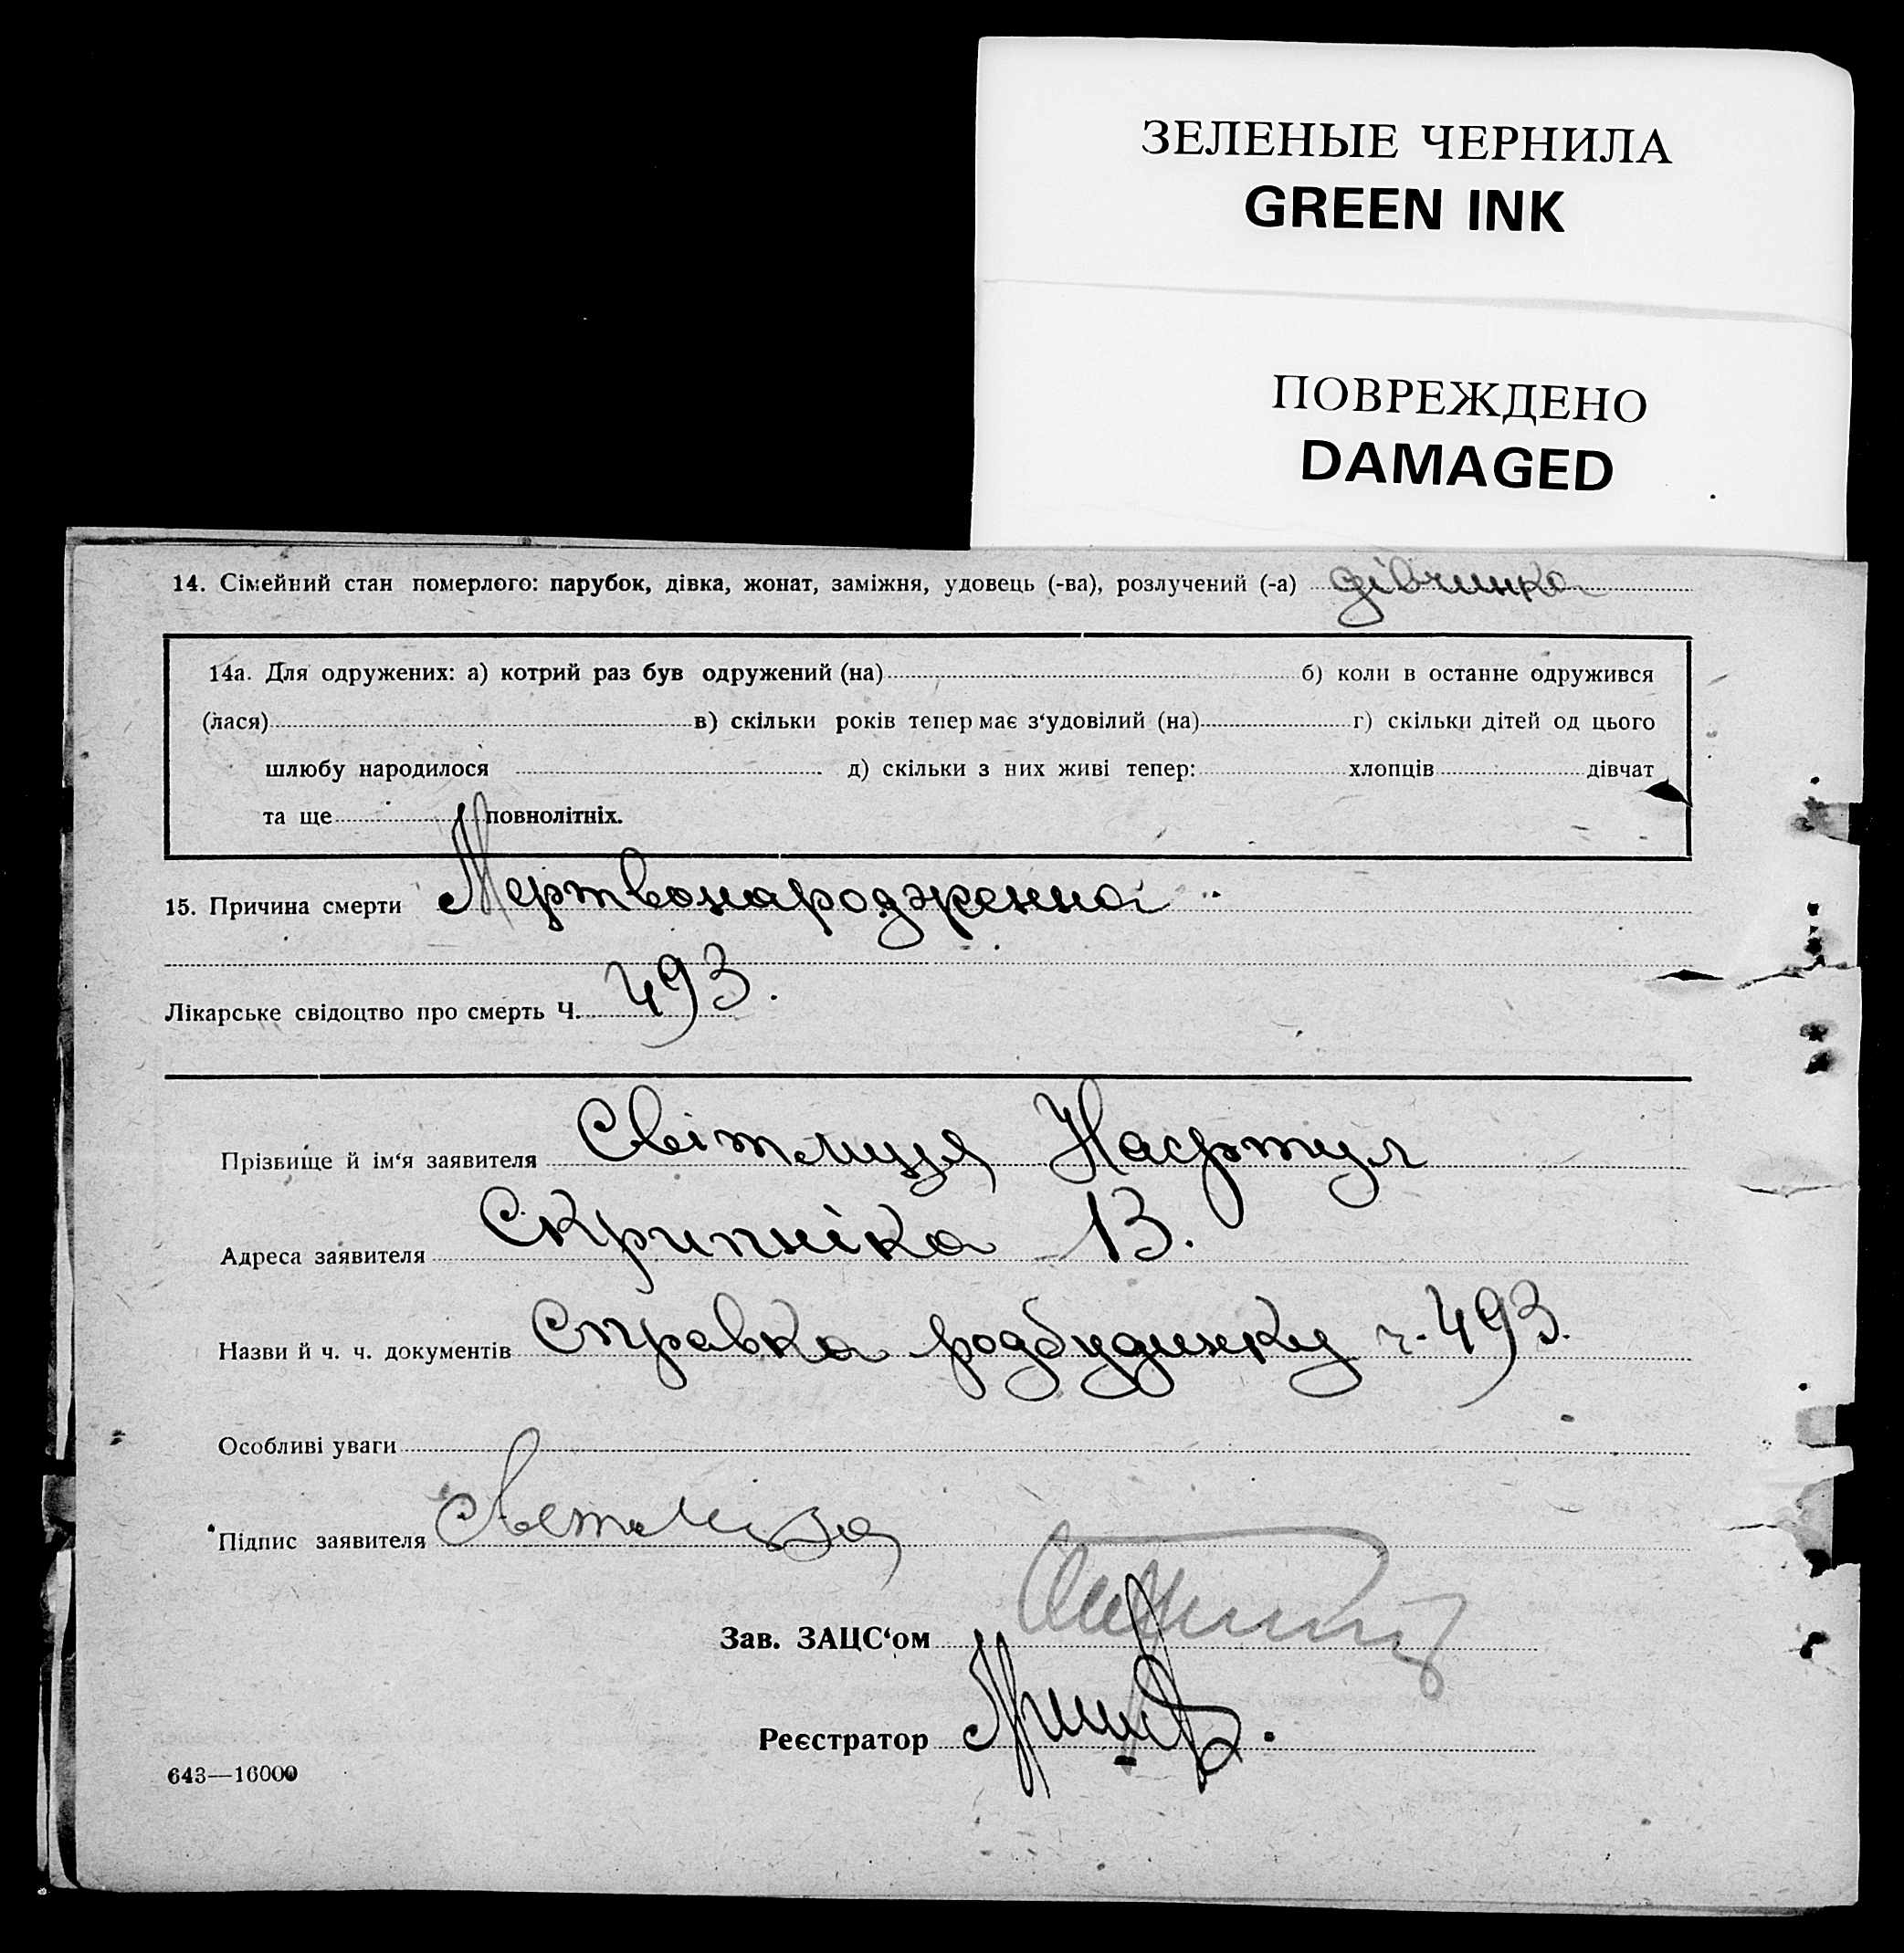 ЗЕЛЕНЫЕ ЧЕРНИЛА
GREEN INK
ПОВРЕЖДЕНО
DAMAGED
14. Сімейний стан померлого: парубок, дівка, жонат, заміжня, удовець (-ва), розлучений (-а) дівчинка
14а. Для одружених: а) котрий раз був одружений (на) б) коли в останнє одружився
(лася) в) скільки років тепер має з‘удовілий (на) г) скільки дітей од цього
шлюбу народилося д) скільки з них живі тепер: хлопців дівчат
та ще повнолітніх.
15. Причина смерти Мертвонародженна
Лікарське свідоцтво про смерть Ч. 493.
Прізвище й ім‘я заявителя Світлиця Нафтул
Адреса заявителя Скрипніка 13.
Назви й ч. ч. документів Справка родбудинку ч. 493.
Особливі уваги
Підпис заявителя
Зав. ЗАЦС‘ом
Реєстратор
643—16000